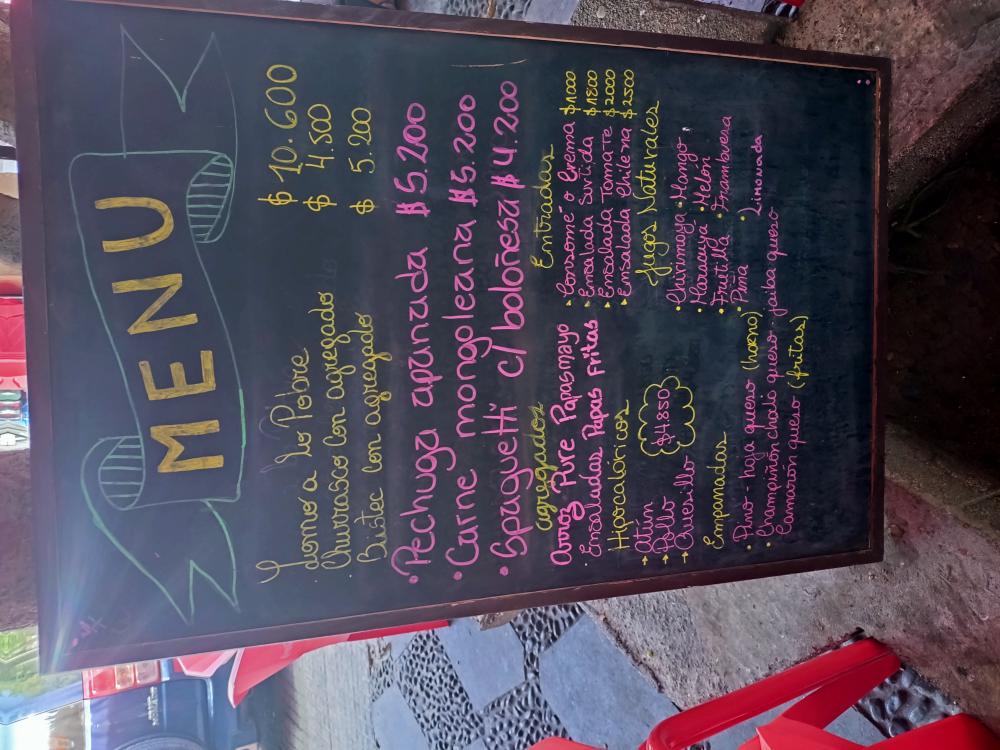 MENU
Lomo a Lo Pobre $ 10.600
Churrasco Con agregado $ 4.500
Bistec con agregado $ 5.200
• Pechuga apanada $ 5.200
• Carne mongoleana $ 5.200
• Spaguetti c/ boloñesa $ 4.200
agregados
Arroz Pure Papasmayo
Ensaladas Papas Fritas
Hipocalóricos
→ Atún
→ Pollo
→ Quesillo
$4850
Entradas
▸ Consomé o Crema $1000
▸ Ensalada Surtida $1800
▸ Ensalada Tomate $2000
▸ Ensalada Chilena $2500
Jugos Naturales
• Chirimoya • Mango
• Maracuya • Melón
• Frutilla • Frambuesa
• Piña Limonada
Empanadas
• Pino - hoja queso (horno)
• Champiñón choclo queso - jaiba queso
Camarón queso (fritas)